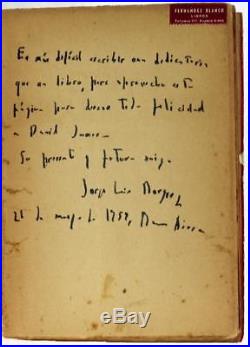 FERNANDEZ BLANCO
LIBROS
Es más difícil escribir una dedicatoria
que un libro, pero aprovecho esta
página para desear toda felicidad
a David
Su presente y futuro amigo
Jorge Luis Borges
de mayo de Buenos Aires